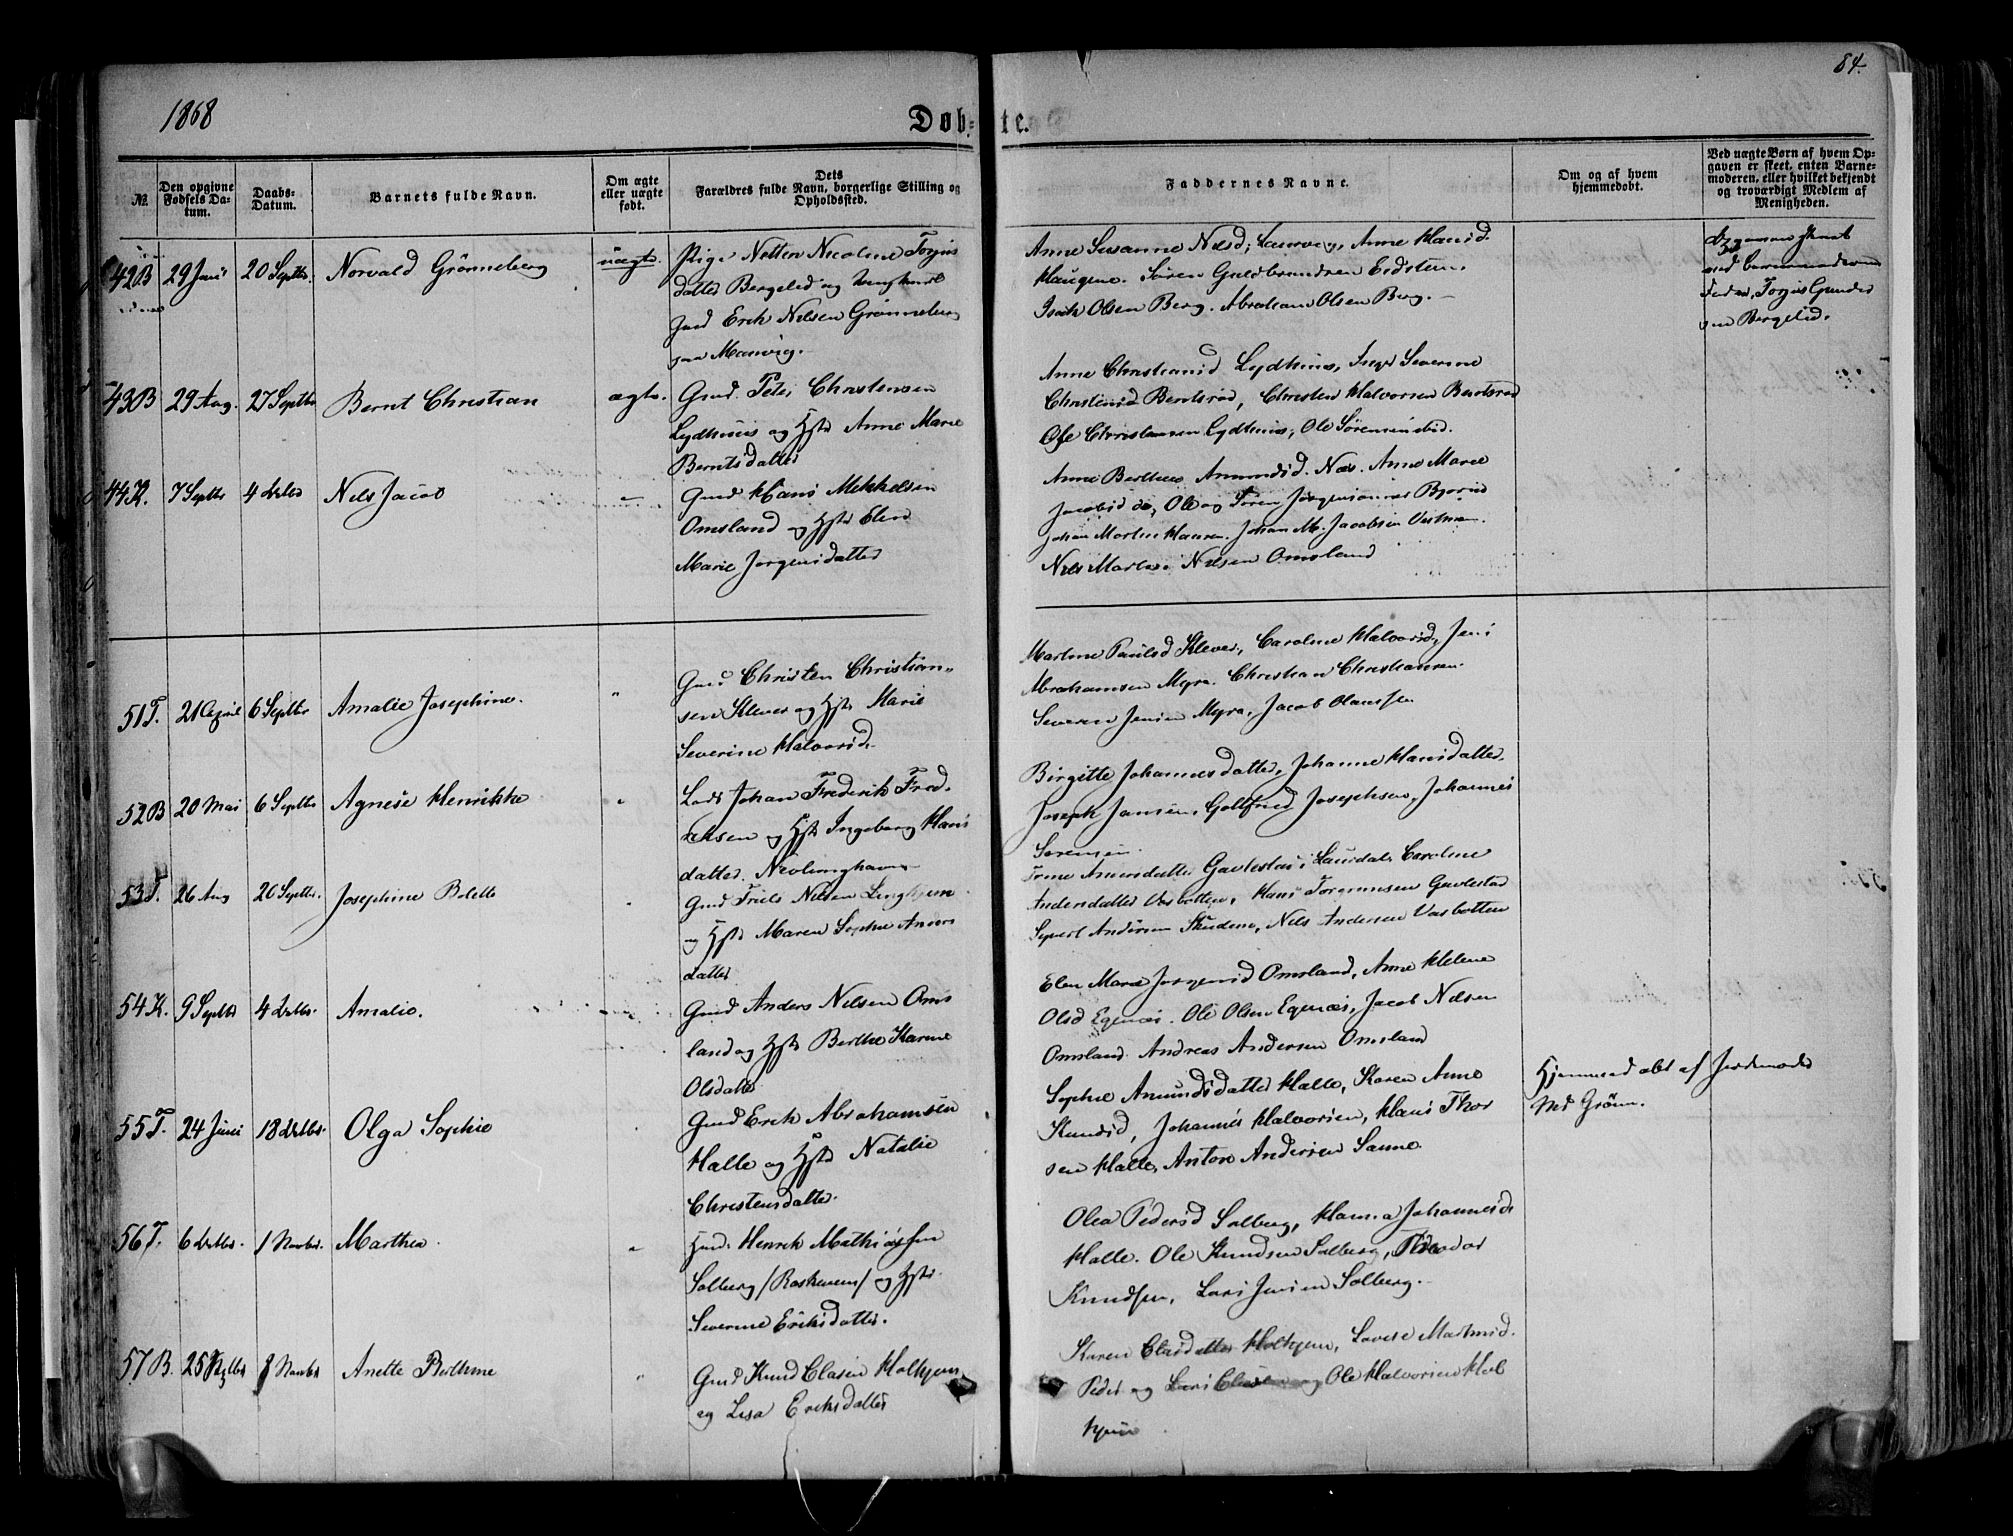 84.
1868
Døb- te.
№
Den opgivne Fødsels Da-tum.
Daabs-Datum.
Barnets fulde Navn.
Om ægte eller uægte født.
Dets Forældres fulde Navn, borgerlige Stilling og Opholdssted.
Faddernes Navne.
Om og af hvem hjemmedøbt.
Ved uægte Børn af hvem Op-gaven er skeet, enten Barne-moderen, eller hvilket bekjendt og troværdigt Medlem af Menigheden.
42B 29 Juni 20 Septbr. Norvald Grønneberg uægte.
Pige Nicoline Torjus
datter Bergelid og
Erik Nilsen Grønneberg
paa Manvig.
Anne Susanne Nilsd, Laurvig, Anne Hansd.
Haugene. Søren Guldbrandsen Eidsten.
Isak Olsen Berg. Abraham Olsen Berg.
Fader, Torjus Gunder
sen Bergelid.
43B 29 Aug. 27 Septbr Bernt Christian ægte.
Gmd. Peter Christensen
Lydhuus og Hstr Anne Marie
Berntsdatter
Anne Christensd Lydhuus, Inger Severine
Christensd Berntsrød, Christen Halvorsen Berntsrød
Ole Christensen Lydhuus, Ole Sørensen ibid.
44K. 7 Septbr 4 Octbr Nils Jacob "
Gmd Hans Mikkelsen
Omsland og Hstr Elen
Marie Jørgensdatter
Anne Berthea Amundsd. Næs. Anne Marie
Jacobsd do, Ole og Søren Jørgensønner
Johan Martin Hansen. Johan M. Jacobsen
Nils Martin Nilsen Omsland
51T. 21 April 6 Septbr Amalie Josephine. "
Gmd Christen Christian-
sen Klever og Hstr Marie
Severine Halvorsd.
Martine Paulsd Klever, Caroline Halvorsd, Jens
Abrahamsen Myra. Christian Christiansen.
Severin Jensen Myra, Jacob Olaussen
52B 20 Mai 6 Septbr Agnese Henrikke "
Lods Johan Frederik Fred-
riksen og Hstr Ingeborg Hans
datter. Nevlunghavn
Birgitte Johannesdatter, Johanne Hansdatter.
Joseph Jansen, Gottfried Josephsen, Johannes
Sørensen.
53T. 26 Aug 20 Septbr. Josephine Bolette "
Gmd Truls Nilsen
og Hstr Maren Sophie Anders
datter
Andersdatter Gavlestad i Laurdal. Caroline
Andersdatter Vasbotten, Hans Torgrimsen Gavlestad
Sivert Andersen Skudene, Nils Andersen Vasbotten
54K. 9 Septbr 4 Octbr. Amalie. "
Gmd Anders Nilsen Oms
land og Hstr Berthe Karine
Olsdatter
Elen Marie Jørgensd Omsland, Anne Helene
Olsd Egenæs. Ole Olsen Egenæs, Jacob Nilsen
Omsland. Andreas Andersen Omsland
55T. 24 Juni 18 Octbr. Olga Sophie "
Gmd Erik Abrahamsen
Halle og Hstr Natalie
Christensdatter.
Sophie Amundsdatter Halle, Karen Anne
Knudsd, Johannes Halvorsen, Hans Thor
sen Halle, Anton Andersen Sanne
Hjemmedøbt af Jordemoder
Md Grønn.
56T. 6 Octbr. 1 Novbr. Marthea. "
Henrik Mathiassen
Solberg og Hstr.
Severine Eriksdatter.
Olea Pedersd Solberg, Hanna Johannesd.
Halle. Ole Knudsen Solberg, Theodor
Knudsen, Lars Jensen Solberg.
57B. 25 Septbr 8 Novbr Anette Bertine "
Gmd Knud Clasen Holkjem
og Lisa Eriksdatter
Karen Clasdatter Holkjem, Lovise Martinsd.
Peder og Ole Halvorsen Hol
kjem